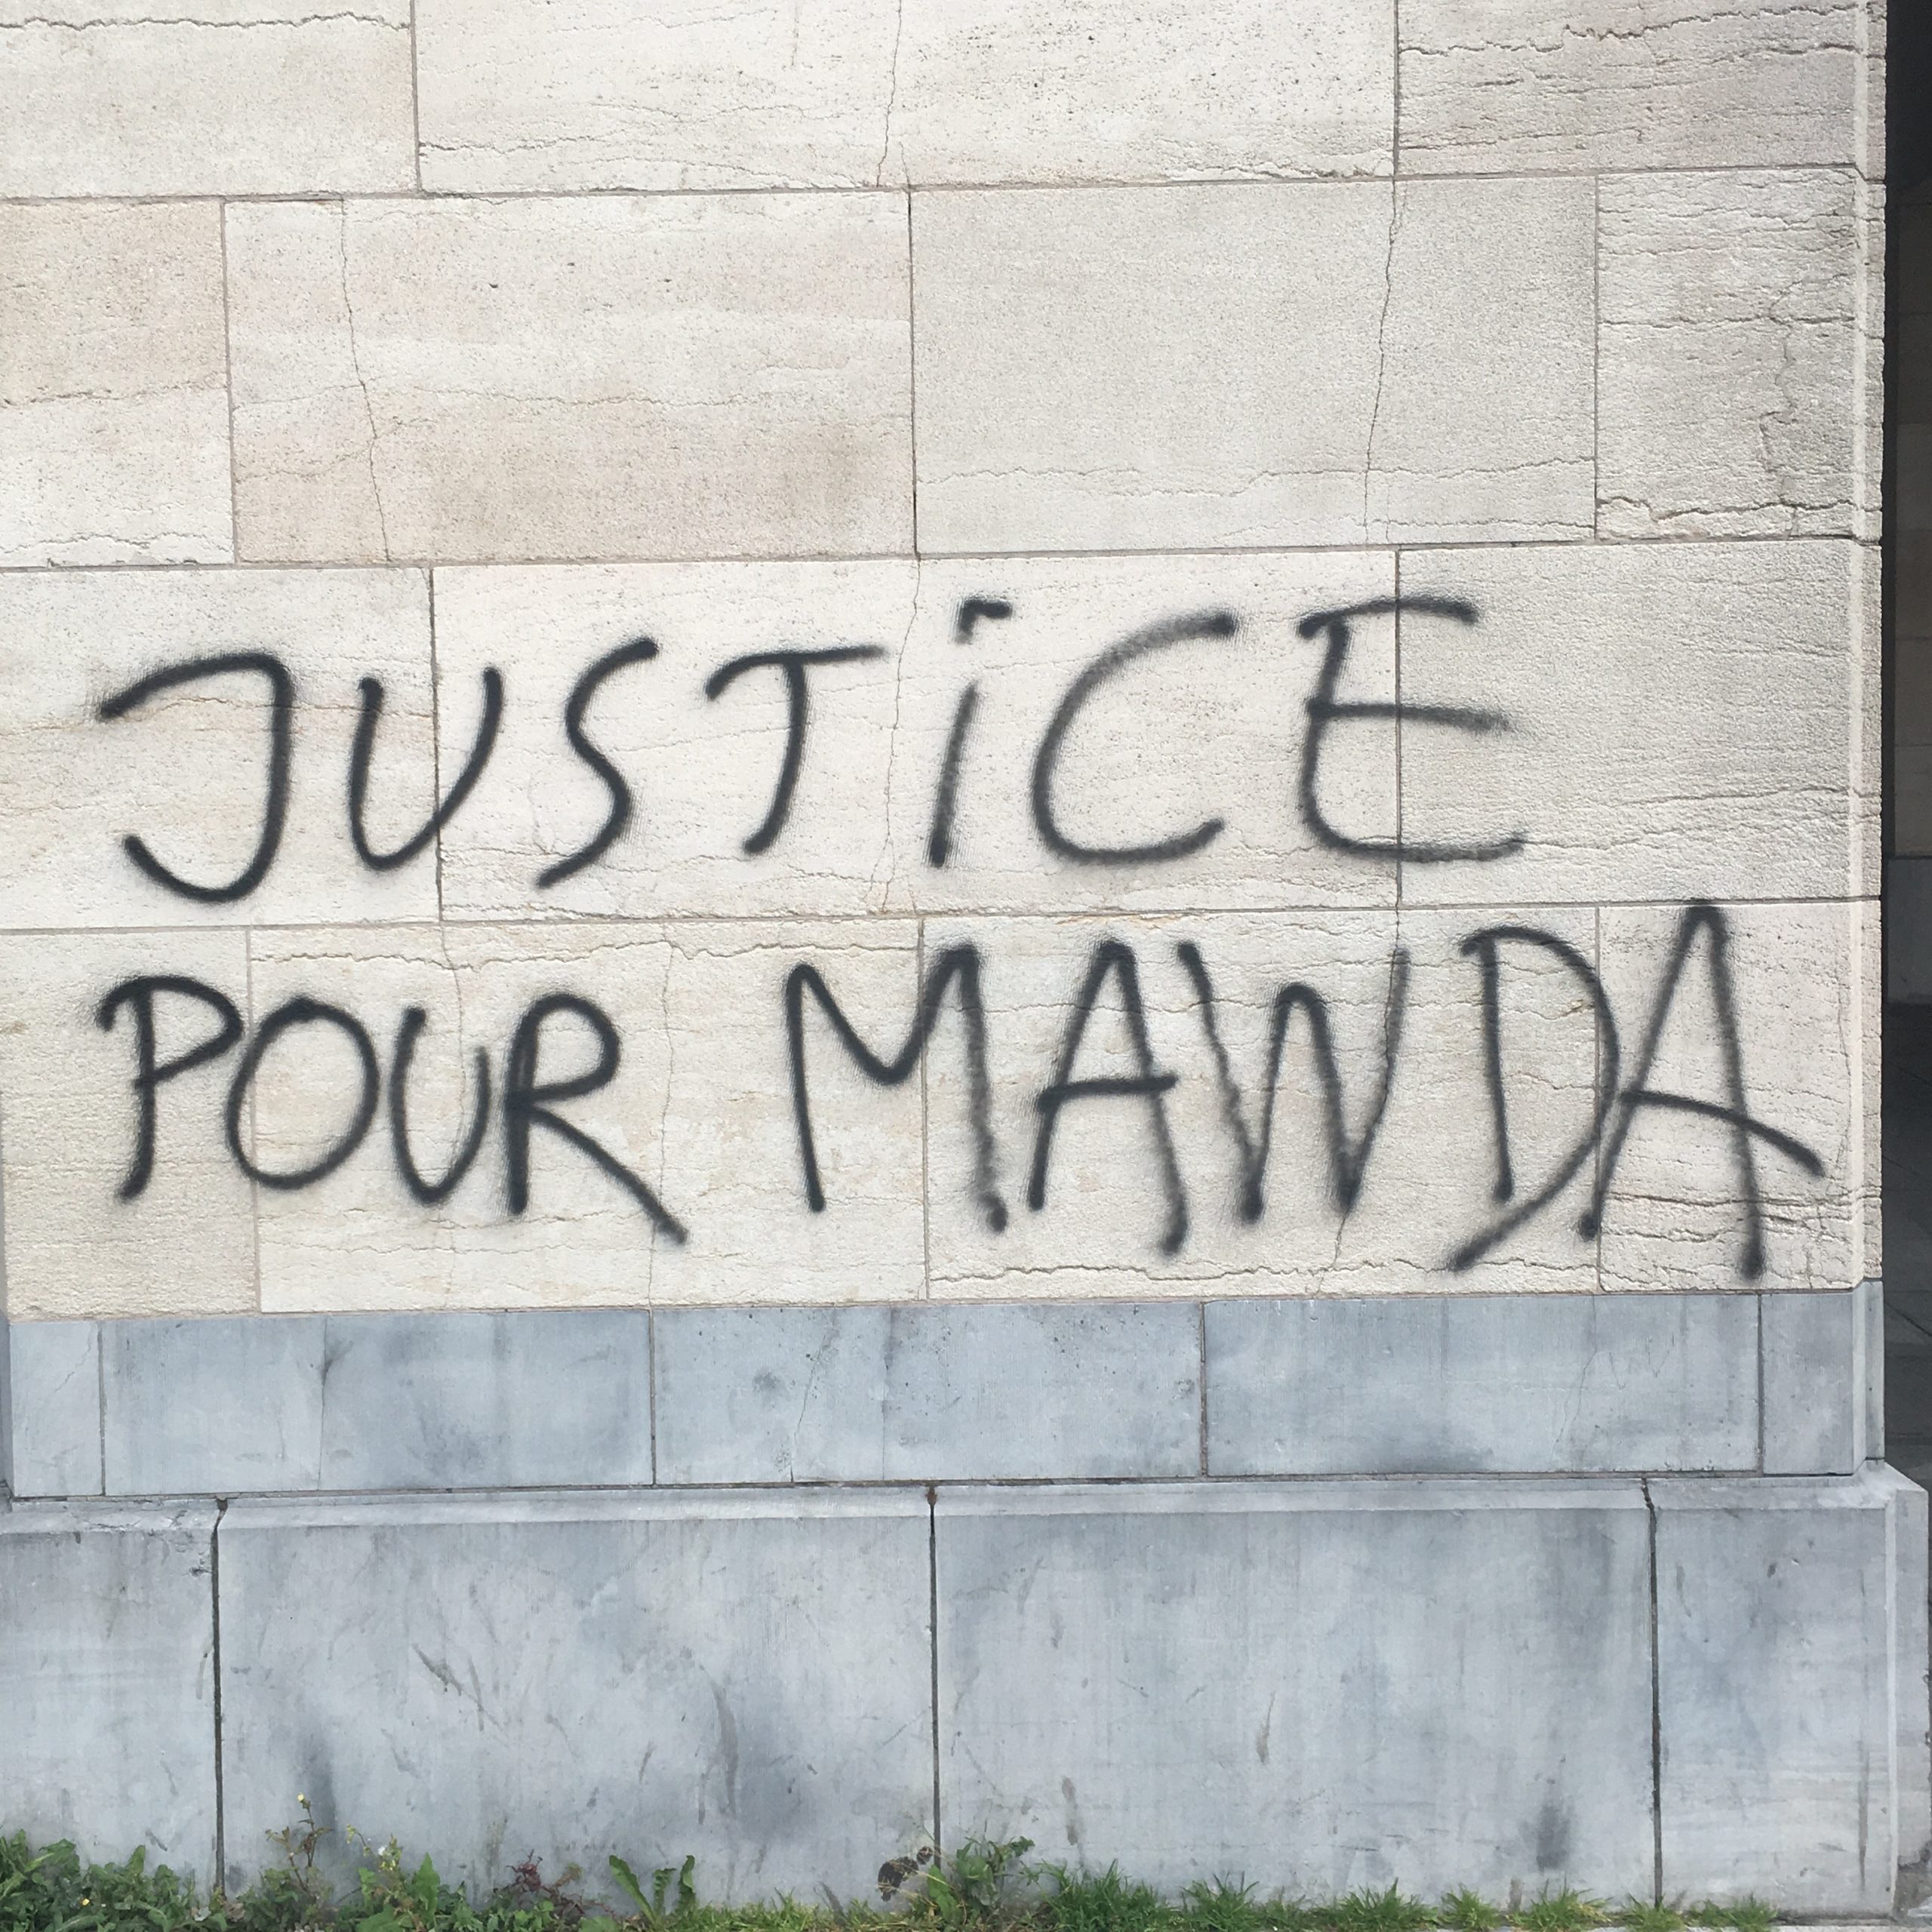 JUSTiCE
POUR MAWDA